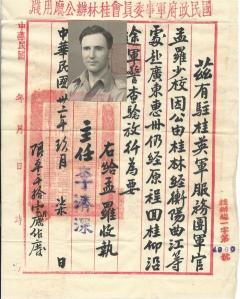 國民政府軍事委員會桂林辦公廳用牋
茲有駐桂英軍服務團軍官
孟羅少校因公由桂林經衡陽曲江等
處赴廣東惠州仍經原程回桂仰沿
途軍警查驗放行為要
右給孟羅收執
主任李濟深
中華民國卅二年玖月柒日
中華民國 年 月 日 時